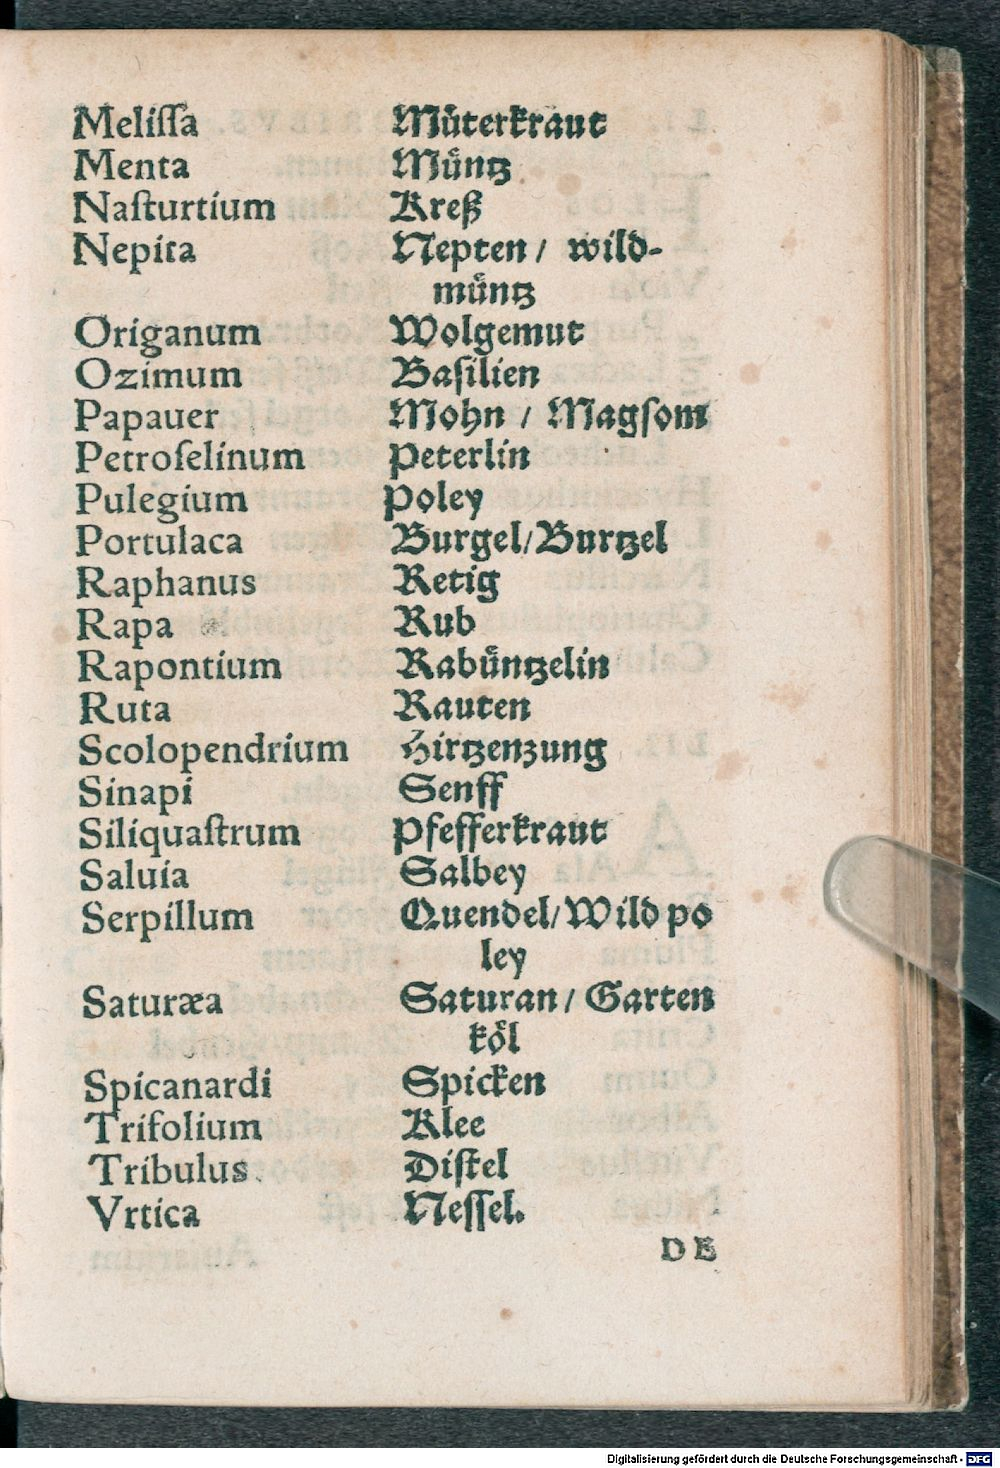 Meliſſa Můterkraut
Menta Müntz
Naſturtium Kreß
Nepita Nepten / wild-
müntz
Origanum Wolgemut
Ozimum Baſilien
Papauer Mohn / Magſom
Petroſelinum Peterlin
Pulegium Poley
Portulaca Burgel/Burtzel
Raphanus Retig
Rapa Rub
Rapontium Rabüntzelin
Ruta Rauten
Scolopendrium Hirtzenzung
Sinapi Senff
Siliquaſtrum Pfefferkraut
Saluia Salbey
Serpillum Quendel/Wild po
ley
Saturæa Saturan / Garten
köl
Spicanardi Spicken
Trifolium Klee
Tribulus Diſtel
Vrtica Neſſel.
DE
Digitalisierung gefördert durch die Deutsche Forschungsgemeinschaft - DFG